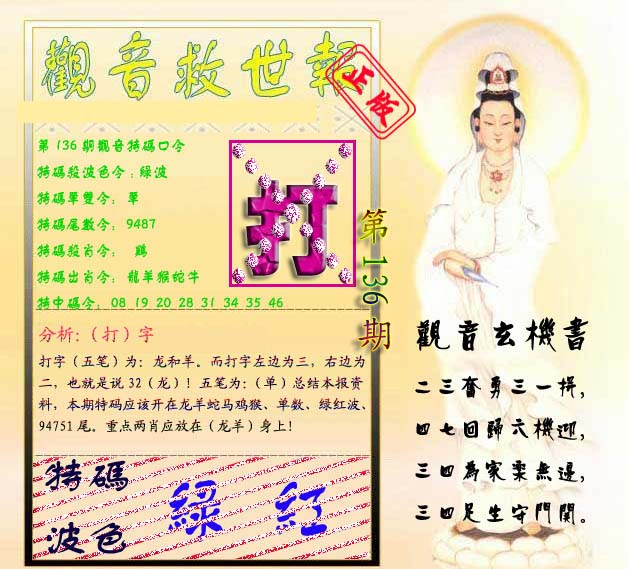 觀音救世報
正版
第136期觀音特碼口令
特碼殺波色令:綠波
特碼單雙令: 單
特碼尾數令: 9487
特碼殺肖令: 鷄
特碼出肖令: 龍羊猴蛇牛
特中碼令: 08 19 20 28 31 34 35 46
打
第136期
分析:（打）字
打字（五笔）为：龙和羊。而打字左边为三，右边为
二，也就是说 32（龙）！五笔为：（单）总结本报资
料，本期特码应该开在龙羊蛇马鸡猴、单数、绿红波、
94751 尾。重点两肖应放在（龙羊）身上！
特碼
波色
綠 紅
觀音玄機書
二三奮勇三一拼，
四七回歸六機迎，
三四為家樂無邊，
三四足生守門關。